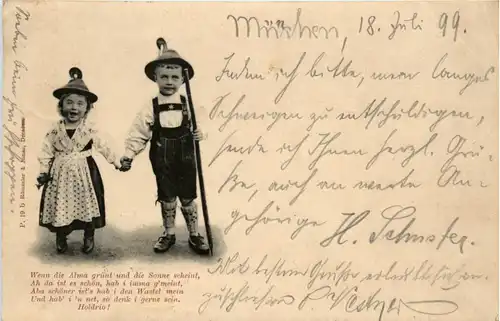 München, 18. Juli 99.
Indem ich bitte, mein langes
Schweigen zu entschuldigen,
sende ich Ihnen herzl. Grü-
ße, auch an werte An-
gehörige H. Schuster.
Mit besten Grüßen
Wenn die Alma grünt und die Sonne scheint,
Ah da ist es schön, hab i imma g'meint,
Aba schöner ist's hab i den Wastel mein
Und hab' i 'n net, so denk i gerns sein.
Holdrio!
P. 19 b Römmler & Jonas, Dresden